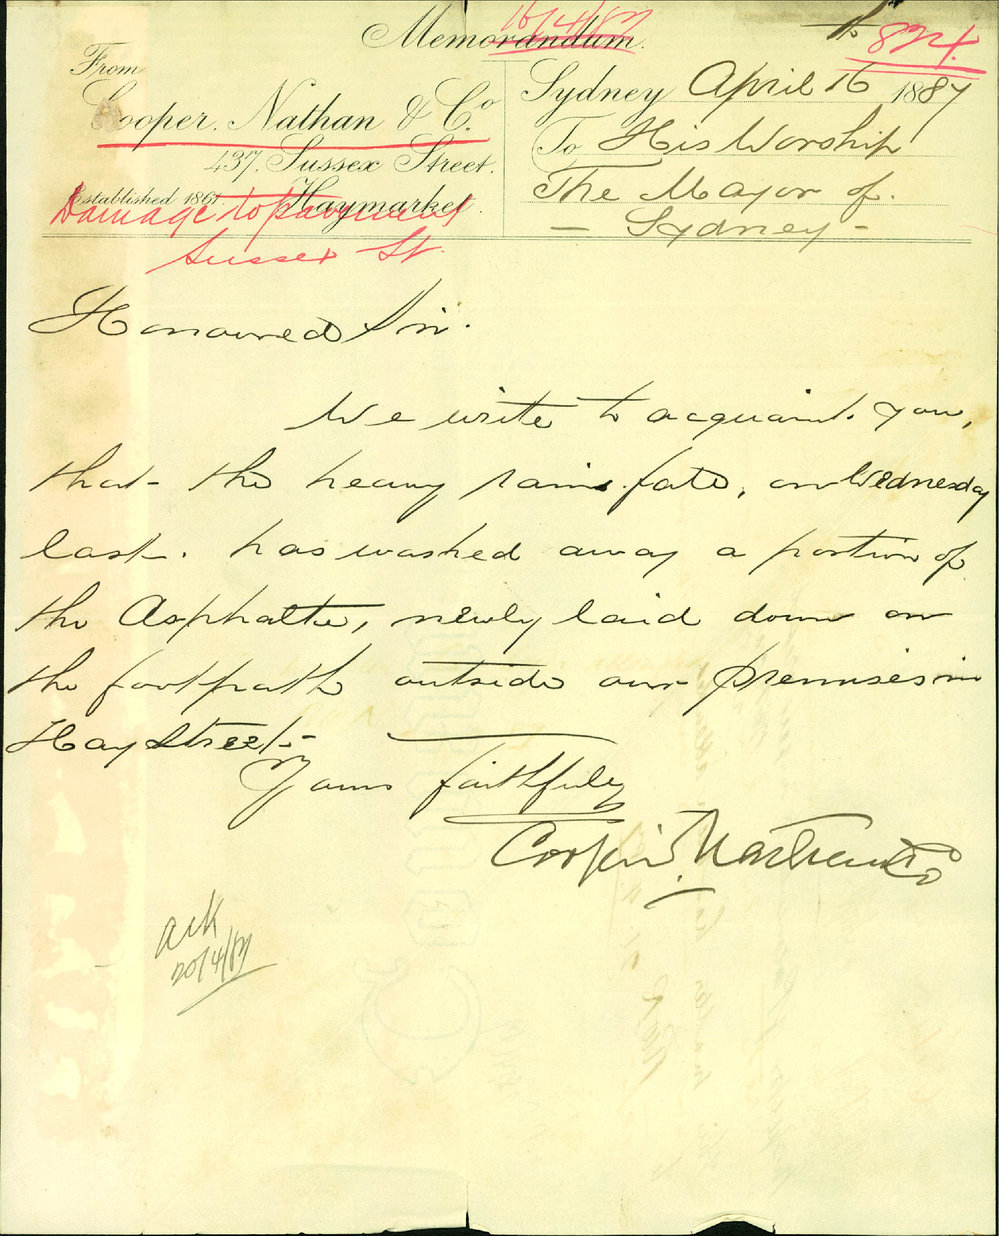 16/4/87
Memorandum.
824.
From
Cooper, Nathan & Co.
437, Sussex Street,
Established 1861 Haymarket.
Sydney April 16 1887
To His Worship
The Mayor of.
- Sydney -
Damage to pavement
Sussex St.
Honoured Sir.
We write to acquaint you,
that the heavy rain fate, on Wednesday
last. has washed away a portion of
the Asphalte, newly laid down on
the footpath outside our premises in
Hay Street.-
Yours faithfully
Cooper, Nathan & Co
Ack
20/4/87